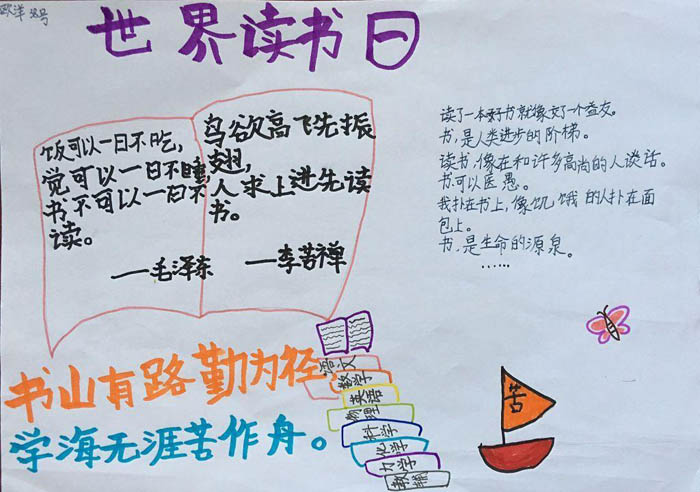 欧洋 38号
世界读书日
饭可以一日不吃，
觉可以一日不睡
书不可以一日不
读。
——毛泽东
鸟欲高飞先振
翅，
人求上进先读
书。
——李苦禅
读了一本好书就像交了一个益友。
书，是人类进步的阶梯。
读书，像在和许多高尚的人谈话。
书可以医愚。
我扑在书上，像饥饿的人扑在面
包上。
书，是生命的源泉。
……
书山有路勤为径
学海无涯苦作舟。
语文
数学
英语
物理
科学
化学
力学
苦